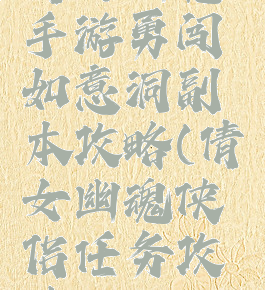 手游勇闯
如意洞副
本攻略(倩
女幽魂侠
侣任务攻